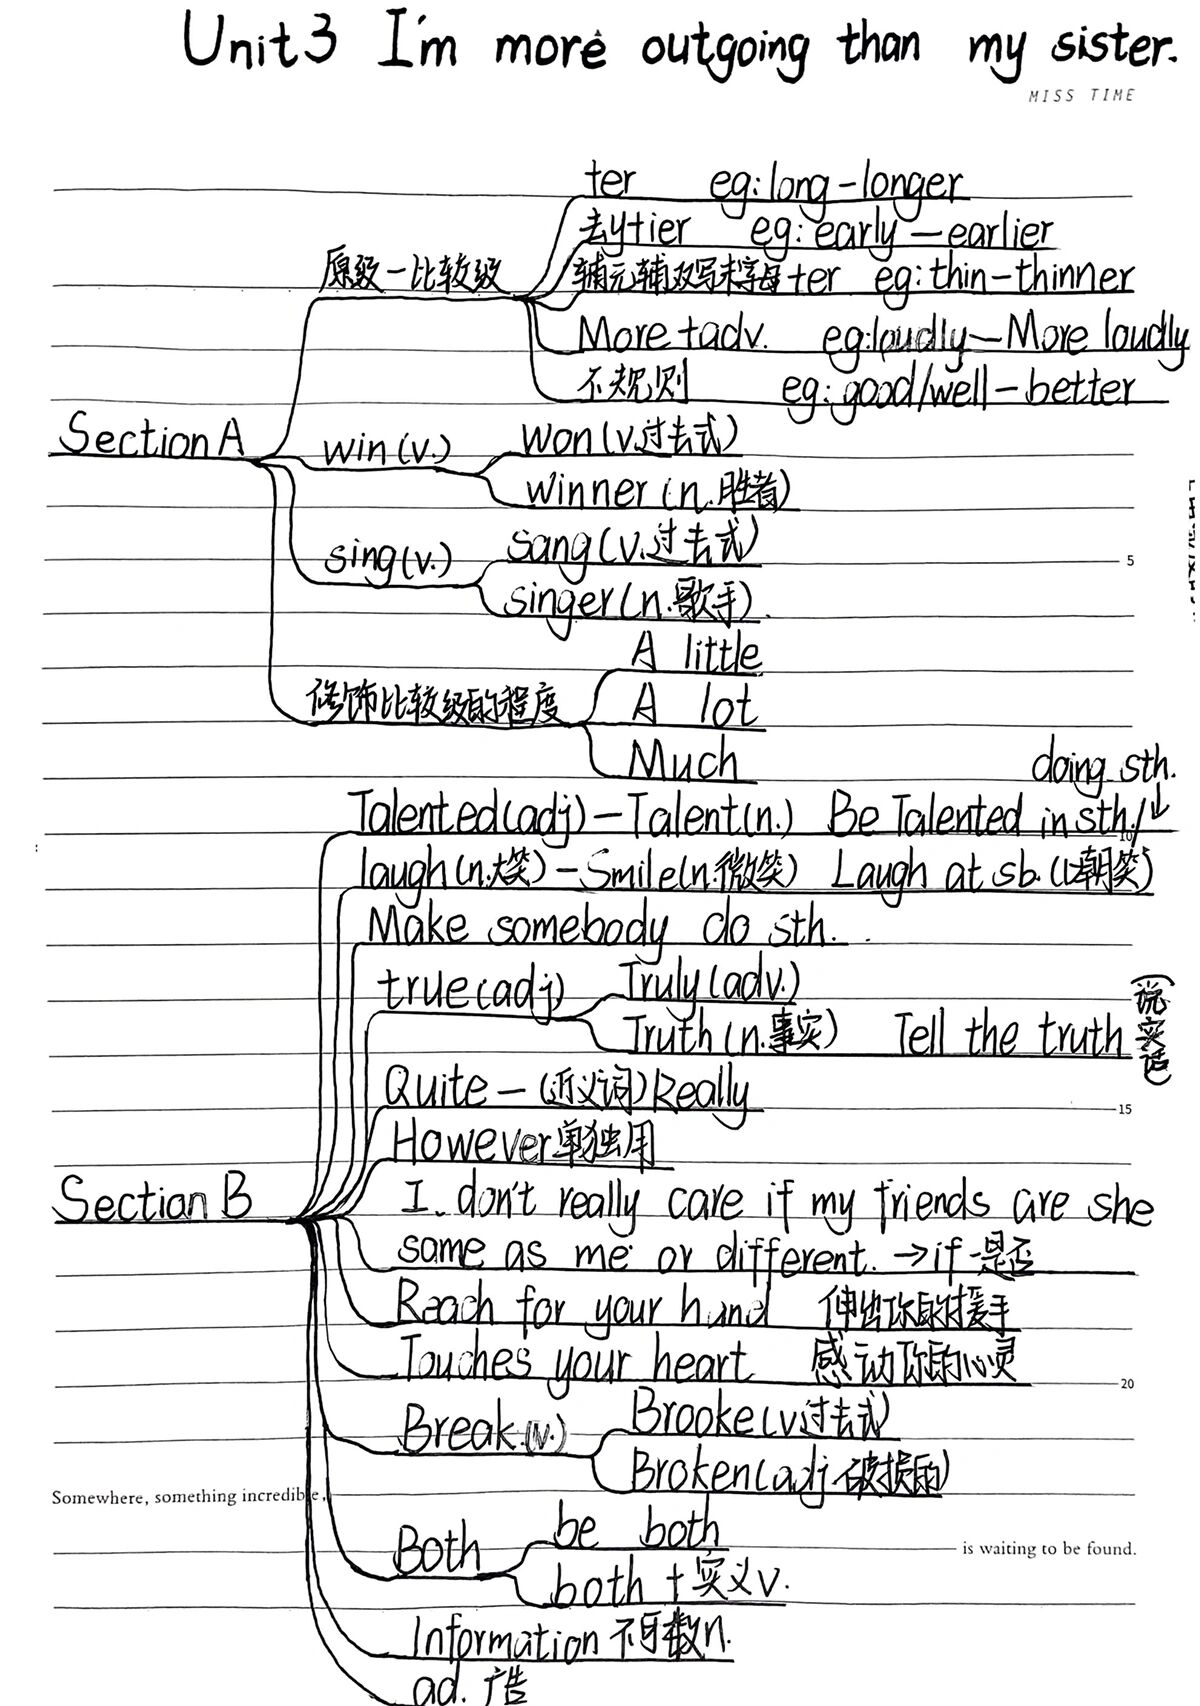 Unit3 I'm more outgoing than my sister.
MISS TIME
Section A
原级-比较级
ter eg:long-longer
去y+ier eg:early-earlier
辅元辅双写末字母+er eg:thin-thinner
More+adv. eg:loudly-More loudly
不规则 eg:good/well-better
win(v.)
won(v.过去式)
winner(n.胜者)
sing(v.)
sang(v.过去式)
singer(n.歌手).
修饰比较级的程度
A little
A lot
Much
5
doing sth.
Section B
Talented(adj)-Talent(n.) Be Talented in sth./↓
10
laugh(n.大笑)-Smile(n.微笑) Laugh at sb.(嘲笑)
Make somebody do sth.
true(adj)
Truly(adv.)
Truth(n.事实) Tell the truth (说实话)
Quite-(近义词)Really
15
However单独用
I. don't really care if my friends are she
same as me or different. →if-是否
Reach for your hand 伸出你的援手
Touches your heart 感动你的心灵
20
Break.(v.)
Brooke(v过去式)
Broken(adj.破损的)
Somewhere, something incredible,
Both
be both
is waiting to be found.
both+实义v.
Information 不可数n.
ad. 广告